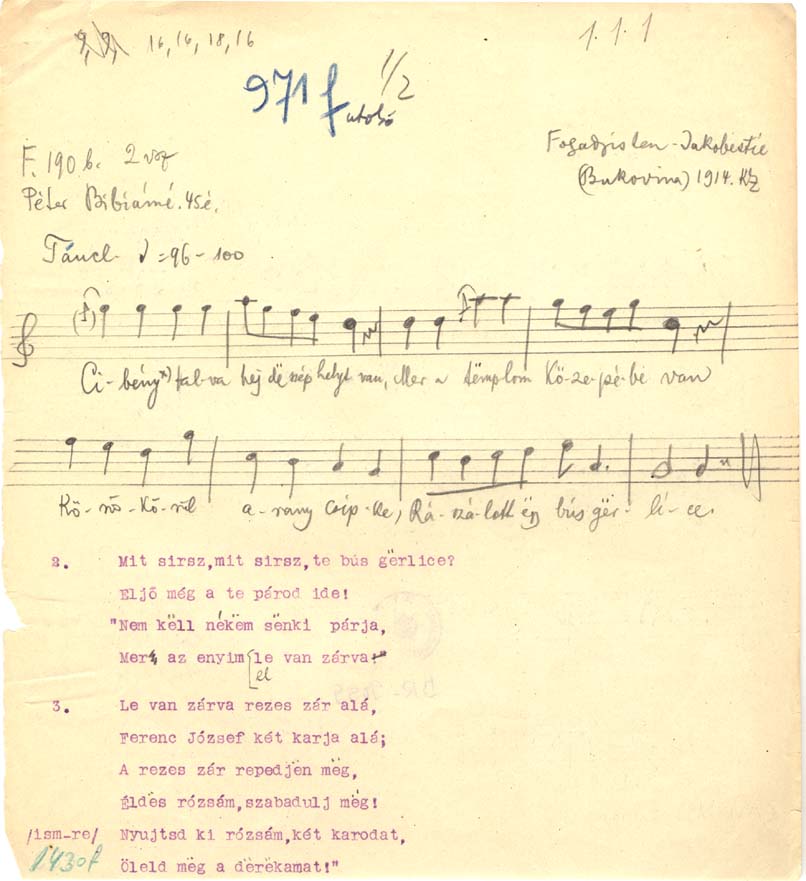 9, 9, 16, 16, 18, 16
1.1.1
971 f utolsó 1/2
F. 190 b. 2 vsz
Fogadjisten-Jakobestie
Péter Bibiámé. 45é.
(Bukovina) 1914. KZ
Táncl. ♩=96-100
Ci-bény*) tal-va hej dë szép helyt van, Mer a tëmplom Kö-ze-pé-be van
Kö-rös-Kö-rül a-rany csip-ke, Rá-szá-lott ëgy bús gër-li-ce.
2. Mit sirsz,mit sirsz,te bús gërlice?
Eljő még a te párod ide!
"Nem këll nékëm sënki párja,
Mer az enyim le van zárva"
el
3. Le van zárva rezes zár alá,
Ferenc József két karja alá;
A rezes zár repedjën mëg,
Éldës rózsám,szabadulj mëg!
/ism-re/ Nyujtsd ki rózsám,két karodat,
1430f Öleld mëg a dërëkamat!"